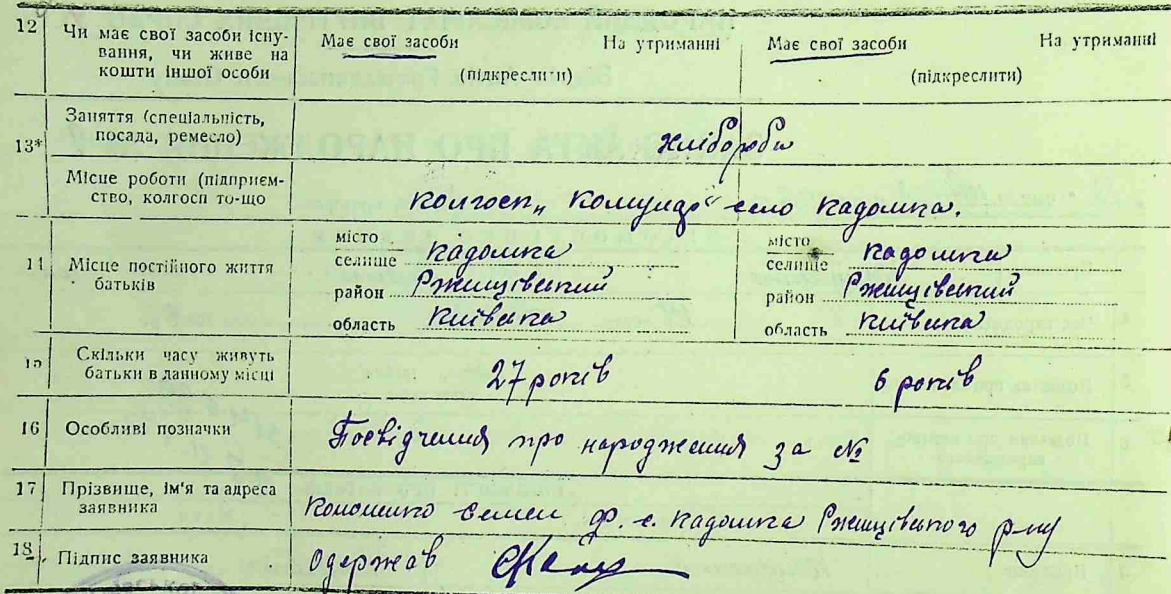 12 Чи має свої засоби існу-
вання, чи живе на
кошти іншої особи
Має свої засоби На утриманні Має свої засоби На утриманні
(підкреслити) (підкреслити)
13* Заняття (спеціальність,
посада, ремесло)
хлібороби
Місце роботи (підприєм-
ство, колгосп то-що
колгосп „Комунар“ село Кадомка.
14 Місце постійного життя
батьків
місто
селище Кадомка
район Ржищівський
область Київська
місто
селище Кадомка
район Ржищівський
область Київська
15 Скільки часу живуть
батьки в данному місці
27 років 6 років
16 Особливі позначки
Посвідчення про народження за №
17 Прізвище, ім'я та адреса
заявника
Кононенко Семен Ф. с. Кадомка Ржищівського р-ну
18 Підпис заявника
Одержав